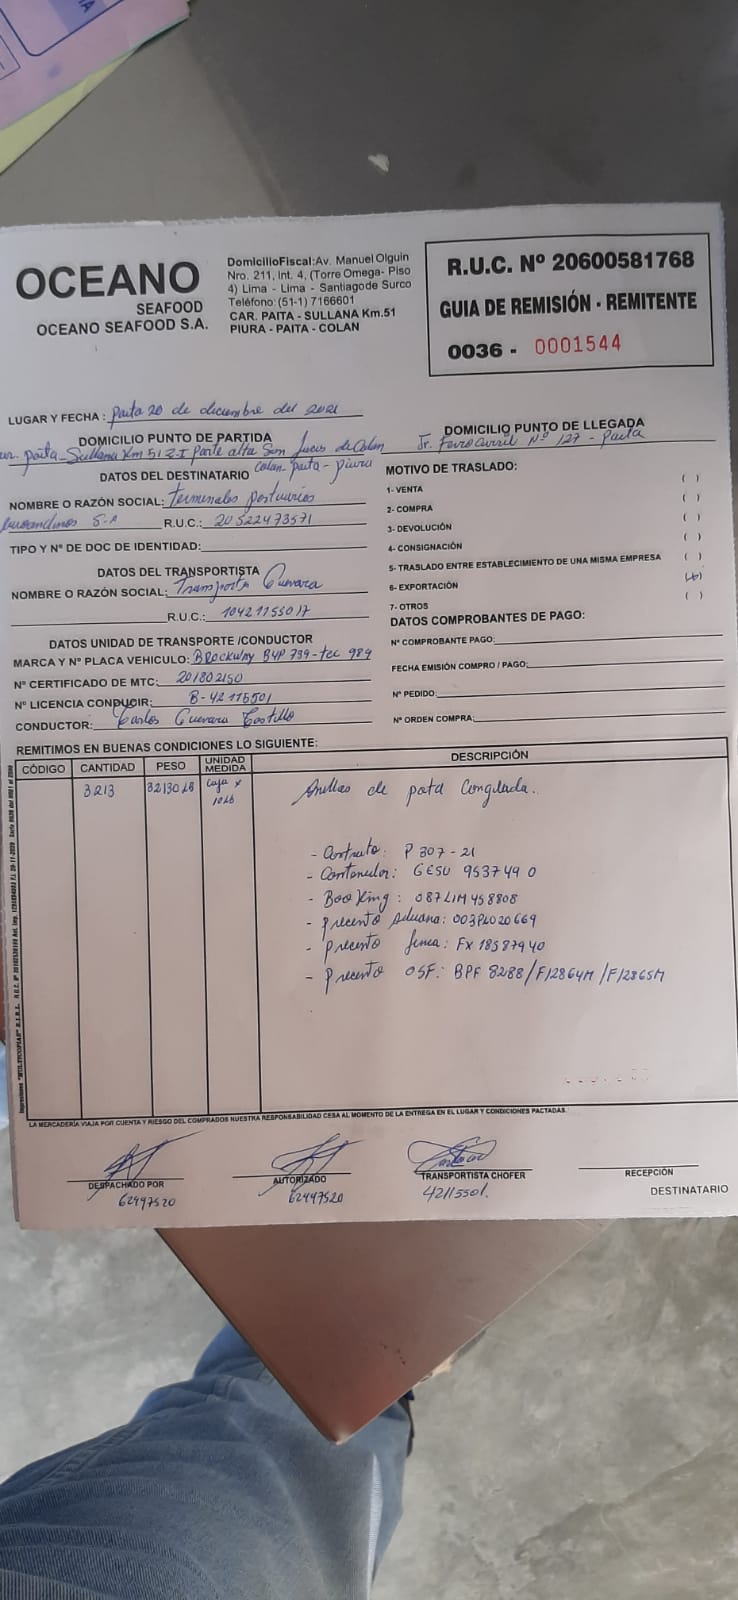 OCEANO
SEAFOOD
OCEANO SEAFOOD S.A.
DomicilioFiscal:Av. Manuel Olguin
Nro. 211, Int. 4, (Torre Omega- Piso
4) Lima - Lima - Santiagode Surco
Teléfono:(51-1) 7166601
CAR. PAITA - SULLANA Km.51
PIURA - PAITA - COLAN
R.U.C. Nº 20600581768
GUIA DE REMISIÓN - REMITENTE
0036 - 0001544
LUGAR Y FECHA : paita 20 de diciembre del 2021
DOMICILIO PUNTO DE PARTIDA
paita-Sullana Km 51 Z-I Parte alta San Lucas de Colan
Colan-paita-piura
DOMICILIO PUNTO DE LLEGADA
Jr. Ferrocarril Nº 127 - Paita
DATOS DEL DESTINATARIO
NOMBRE O RAZÓN SOCIAL: Terminales portuarios
Euroandinos S-A R.U.C.: 20522473571
TIPO Y Nº DE DOC DE IDENTIDAD:
DATOS DEL TRANSPORTISTA
NOMBRE O RAZÓN SOCIAL: Transporte Guevara
R.U.C.: 10421155017
DATOS UNIDAD DE TRANSPORTE /CONDUCTOR
MARCA Y Nº PLACA VEHICULO: Brockway B4P 739-tec 989
Nº CERTIFICADO DE MTC: 201802150
Nº LICENCIA CONDUCIR: B-42115501
CONDUCTOR: Carlos Guevara Castillo
MOTIVO DE TRASLADO:
1- VENTA ( )
2- COMPRA ( )
3- DEVOLUCIÓN ( )
4- CONSIGNACIÓN ( )
5- TRASLADO ENTRE ESTABLECIMIENTO DE UNA MISMA EMPRESA ( )
6- EXPORTACIÓN (x)
7- OTROS ( )
DATOS COMPROBANTES DE PAGO:
Nº COMPROBANTE PAGO:
FECHA EMISIÓN COMPRO / PAGO:
Nº PEDIDO:
Nº ORDEN COMPRA:
REMITIMOS EN BUENAS CONDICIONES LO SIGUIENTE:
CÓDIGO CANTIDAD PESO UNIDAD MEDIDA DESCRIPCIÓN
3213 32130 LB Caja x 10 Lb Anillas de pota Congelada.
- Contrato: P 307-21
- Contenedor: GESU 953749 0
- Booking: 087LIM458808
- Precento Aduana: 003PL020669
- precento linea: FX 18587940
- Precento OSF: BPF 8288/F12864M/F12865M
LA MERCADERÍA VIAJA POR CUENTA Y RIESGO DEL COMPRADOS NUESTRA RESPONSABILIDAD CESA AL MOMENTO DE LA ENTREGA EN EL LUGAR Y CONDICIONES PACTADAS.
DESPACHADO POR
62497520
AUTORIZADO
62497520
TRANSPORTISTA CHOFER
42115501.
RECEPCIÓN
DESTINATARIO